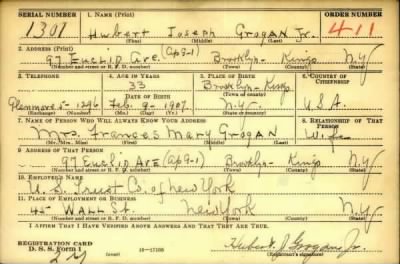 SERIAL NUMBER 1. NAME (Print) ORDER NUMBER
1301 Hubert Joseph Grogan Jr. 411
(First) (Middle) (Last)
2. ADDRESS (Print)
97 Euclid Ave. (Ap 9-1) Brooklyn - Kings N.Y
(Number and street or R. F. D. number) (Town) (County) (State)
3. TELEPHONE 4. AGE IN YEARS 5. PLACE OF BIRTH 6. COUNTRY OF CITIZENSHIP
33 Brooklyn - Kings
DATE OF BIRTH (Town or county)
Glenmore 5-1296 Feb. 9 - 1907. N.Y. U.S.A.
(Exchange) (Number) (Mo.) (Day) (Yr.) (State or country)
7. NAME OF PERSON WHO WILL ALWAYS KNOW YOUR ADDRESS 8. RELATIONSHIP OF THAT PERSON
Mrs. Frances Mary Grogan Wife
(Mr., Mrs., Miss) (First) (Middle) (Last)
9. ADDRESS OF THAT PERSON
97 Euclid Ave (Ap 9-1) Brooklyn - Kings N.Y
(Number and street or R. F. D. number) (Town) (County) (State)
10. EMPLOYER'S NAME
U. S. Trust Co. of New York
11. PLACE OF EMPLOYMENT OR BUSINESS
45 Wall St. New York N.Y
(Number and street or R. F. D. number) (Town) (County) (State)
I AFFIRM THAT I HAVE VERIFIED ABOVE ANSWERS AND THAT THEY ARE TRUE.
REGISTRATION CARD
D. S. S. Form 1 (over) Hubert J Grogan Jr.
(Registrant's signature)